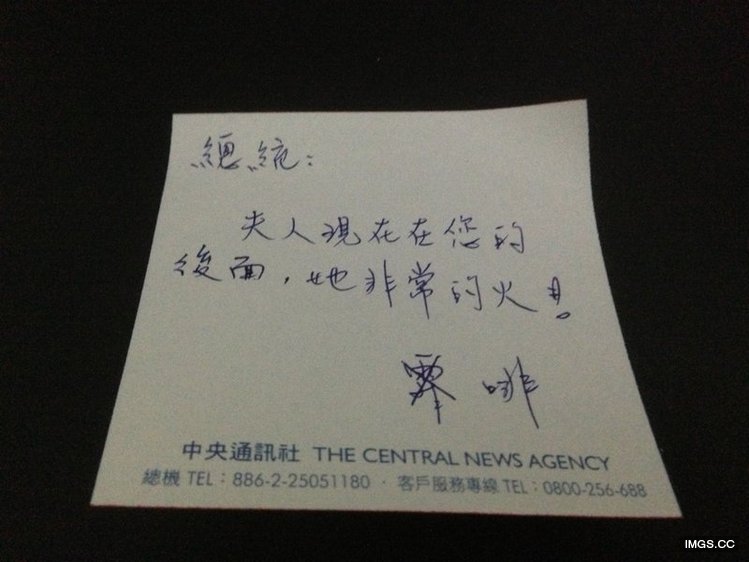 總統：
夫人現在在您的
後面，她非常的火！
啡
中央通訊社 THE CENTRAL NEWS AGENCY
總機 TEL：886-2-25051180 · 客戶服務專線 TEL：0800-256-688
IMGS.CC